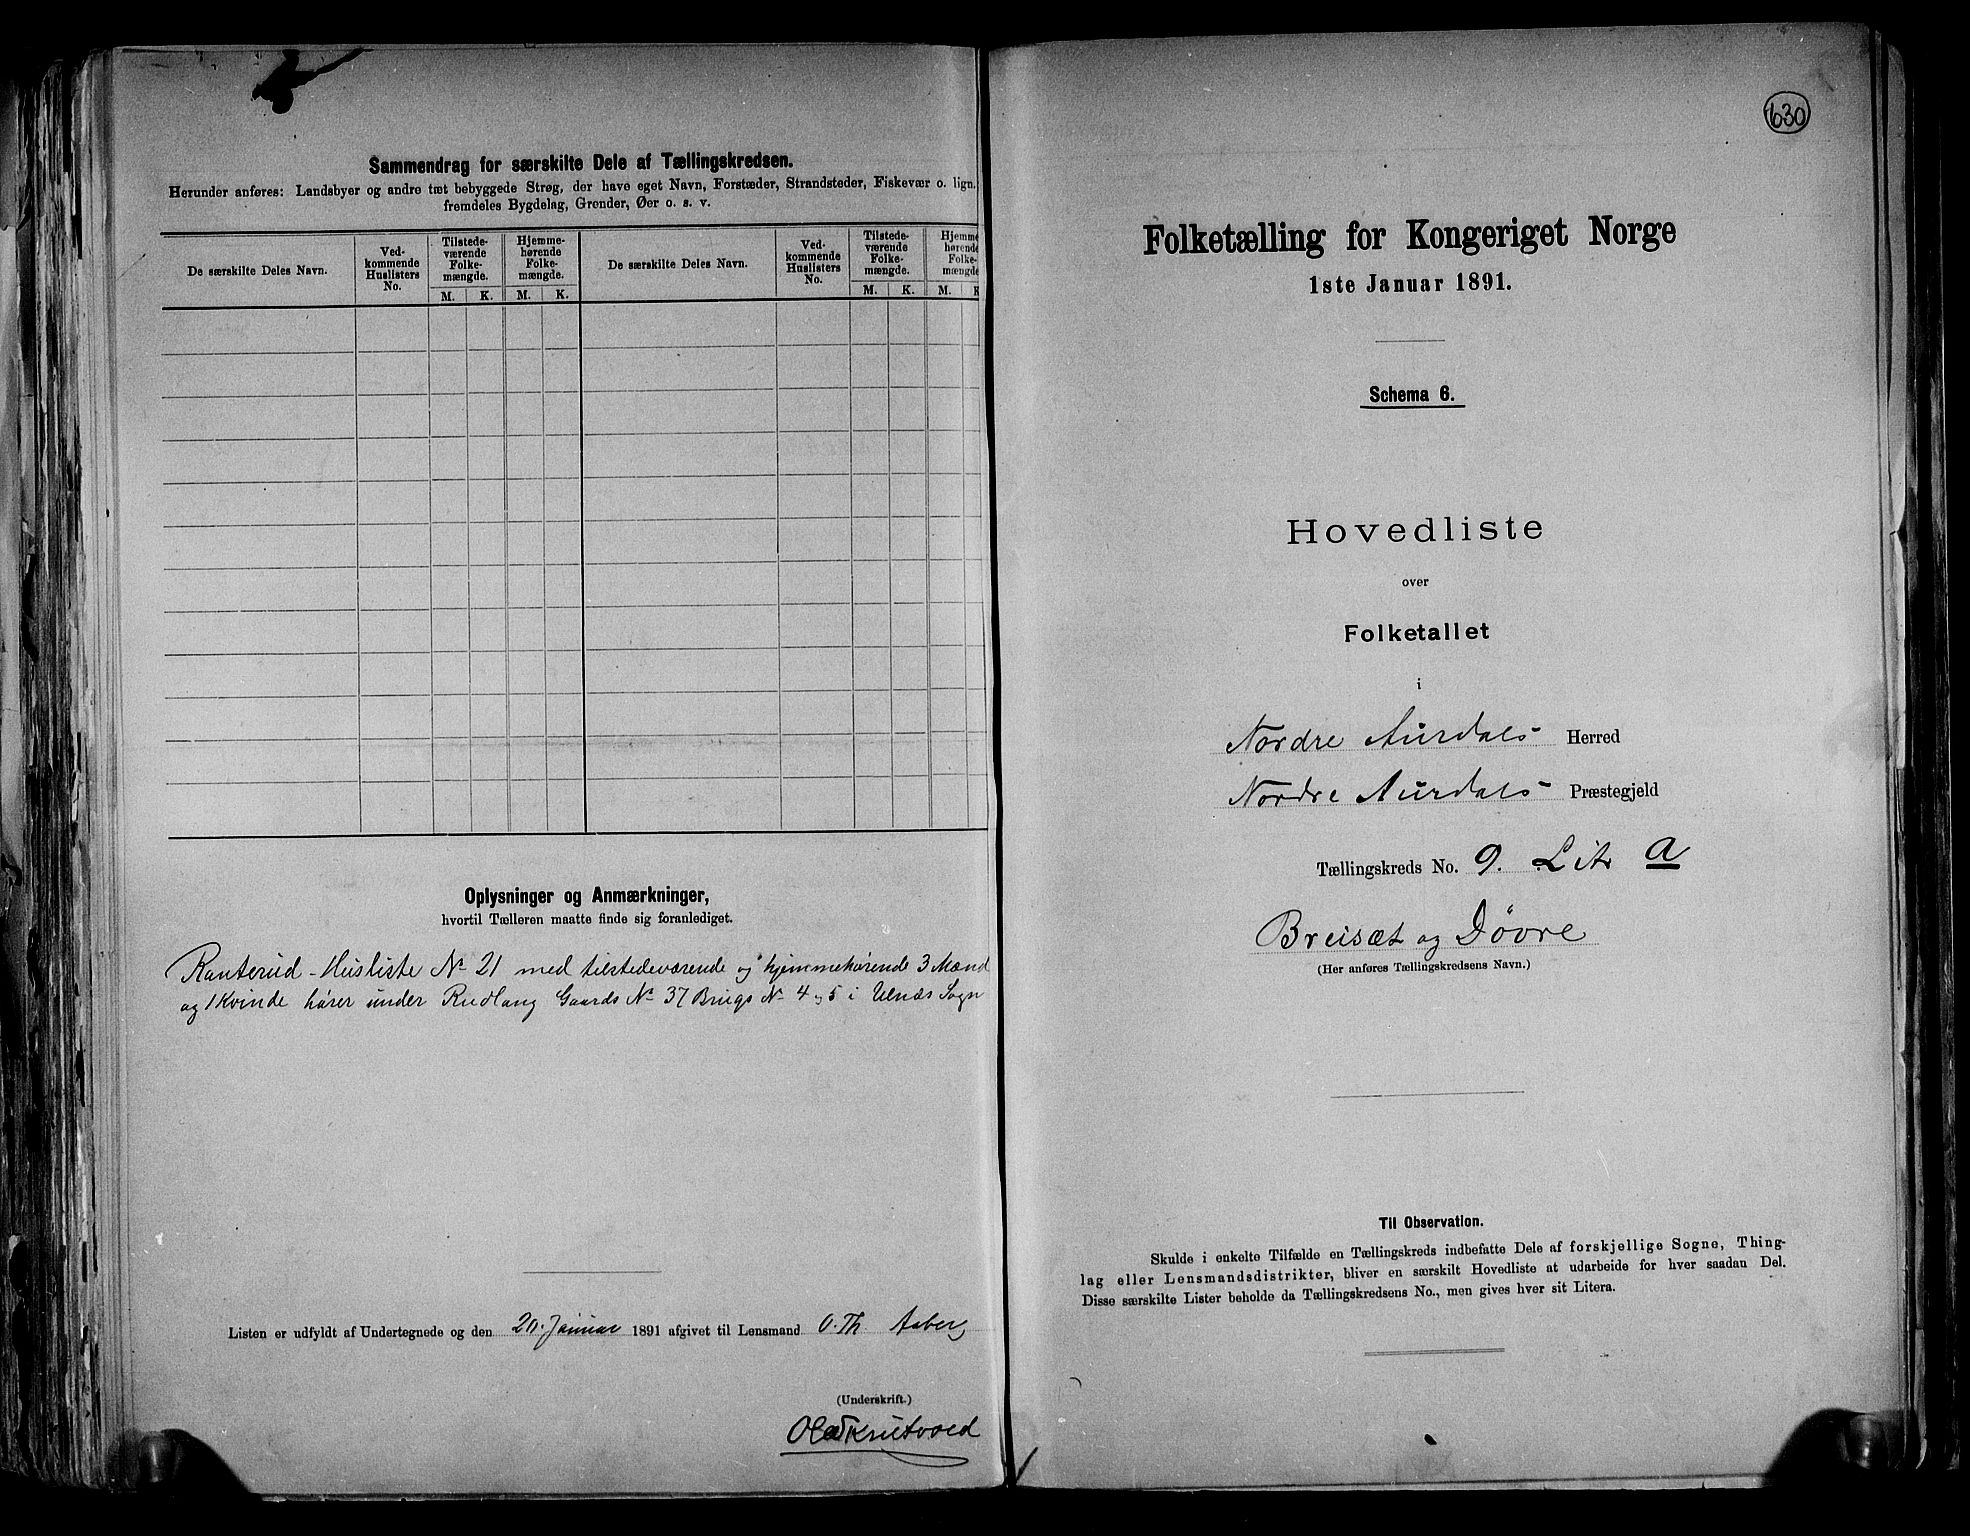 Sammendrag for særskilte Dele af Tællingskredsen.
Herunder anføres: Landsbyer og andre tæt bebyggede Strøg, der have eget Navn, Forstæder, Strandsteder, Fiskevær o. lign.
fremdeles Bygdelag, Grender, Øer o. s. v.
De særskilte Deles Navn.
Ved-
kommende
Huslisters
No.
Tilstede-
værende
Folke-
mængde.
Hjemme-
hørende
Folke-
mængde.
M. K. M. K.
De særskilte Deles Navn.
Ved-
kommende
Huslisters
No.
Tilstede-
værende
Folke-
mængde.
Hjemme
hørende
Folke-
mængde
M. K. M. K
Oplysninger og Anmærkninger,
hvortil Tælleren maatte finde sig foranlediget.
Ranterud - Husliste No 21 med tilstedeværende og hjemmehørende 3 Mænd
og 1 Kvinde hører under Rudlang Gaards No 37 Brugs No 4 og 5 i Ulnæs Sogn
Listen er udfyldt af Undertegnede og den 20. Januar 1891 afgivet til Lensmand O. Th Aaberg
(Underskrift.)
630
Folketælling for Kongeriget Norge
1ste Januar 1891.
Schema 6.
Hovedliste
over
Folketallet
i
Nordre Aurdals Herred
Nordre Aurdals Præstegjeld
Tællingskreds No. 9. Litr a
Breisæt og Døvre
(Her anføres Tællingskredsens Navn.)
Til Observation.
Skulde i enkelte Tilfælde en Tællingskreds indbefatte Dele af forskjellige Sogne, Thing-
lag eller Lensmandsdistrikter, bliver en særskilt Hovedliste at udarbeide for hver saadan Del.
Disse særskilte Lister beholde da Tællingskredsens No., men gives hver sit Litera.